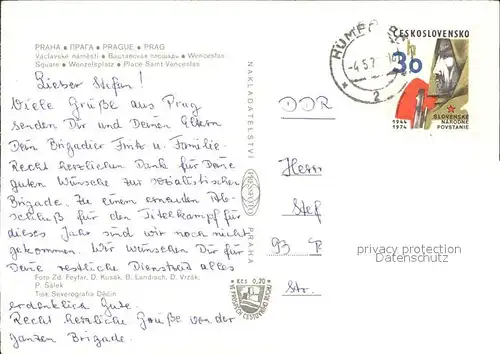 PRAHA • ПРАГА • PRAGUE • PRAG
Václavské náměstí • Вацлавская площадь • Wenceslas
Square • Wenzelsplatz • Place Saint Venceslas
Lieber Stefan!
Viele Grüße aus Prag
senden Dir und Deinen Eltern
Dein Brigadier Fritz u. Familie.
Recht herzlichen Dank für Deine
guten Wünsche zur sozialistischen
Brigade. Zu einem erneuten Ab-
schluß für den Titelkampf für
dieses Jahr sind wir noch nicht
gekommen. Wir wünschen Dir für
Deine restliche Dienstzeit alles
Foto Zd. Feyfar, D. Kusák, B. Landisch, D. Vrzák,
P. Šálek
Tisk Severografia Děčín
erdenklich Gute.
Recht herzliche Grüße von der
ganzen Brigade.
NAKLADATELSTVÍ
PRESSFOTO
PRAHA
Kčs 0,20
DDR
Herr
Stef
93 P
Str.
-4.5.7
2
ČESKOSLOVENSKO
30 h
1944
1974
SLOVENSKÉ
NÁRODNÉ
POVSTANIE
privacy protection
Datenschutz